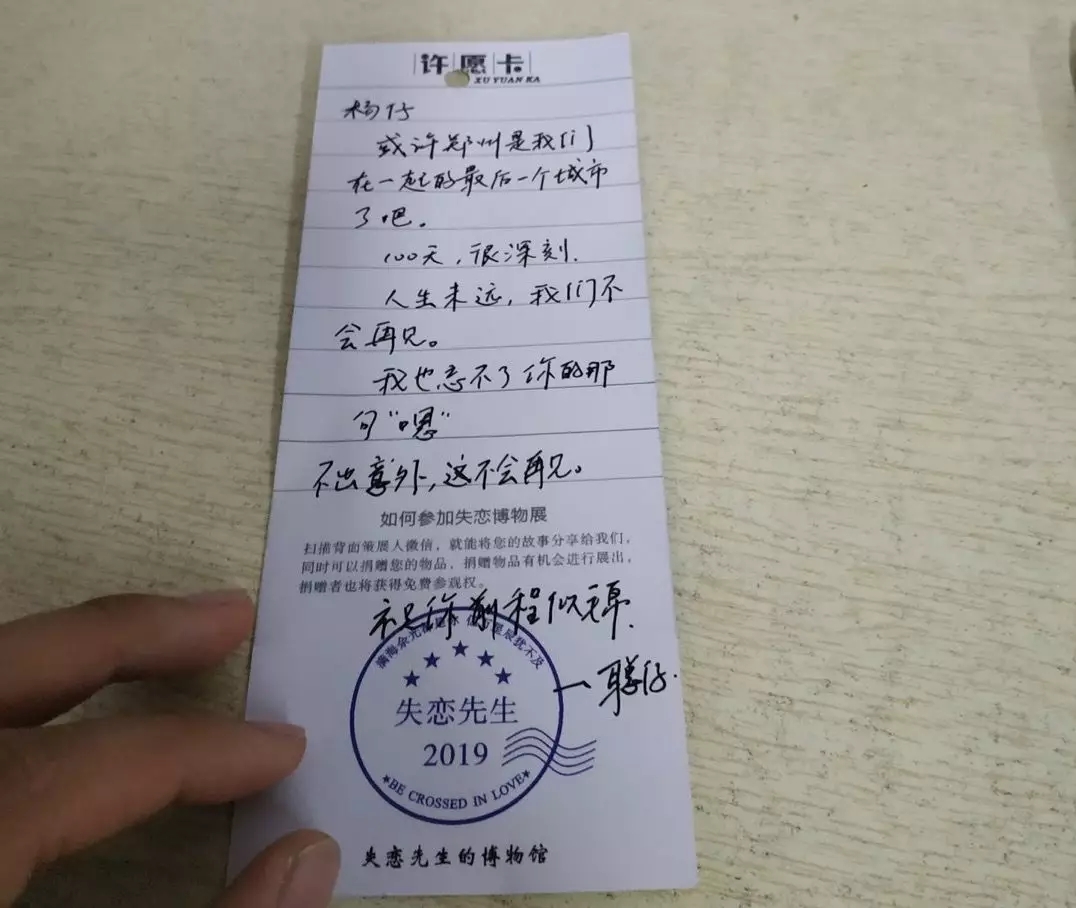 许愿卡
XU YUAN KA
杨仔
或许郑州是我们
在一起的最后一个城市
了吧。
100天，很深刻.
人生未远，我们不
会再见。
我也忘不了你的那
句“嗯”
不出意外，这不会再见。
如何参加失恋博物展
扫描背面策展人微信，就能将您的故事分享给我们，
同时可以捐赠您的物品，捐赠物品有机会进行展出，
捐赠者也将获得免费参观权。
祝你前程似锦.
—聪仔.
星辰犹不及
失恋先生
2019
BE CROSSED IN LOVE
失恋先生的博物馆